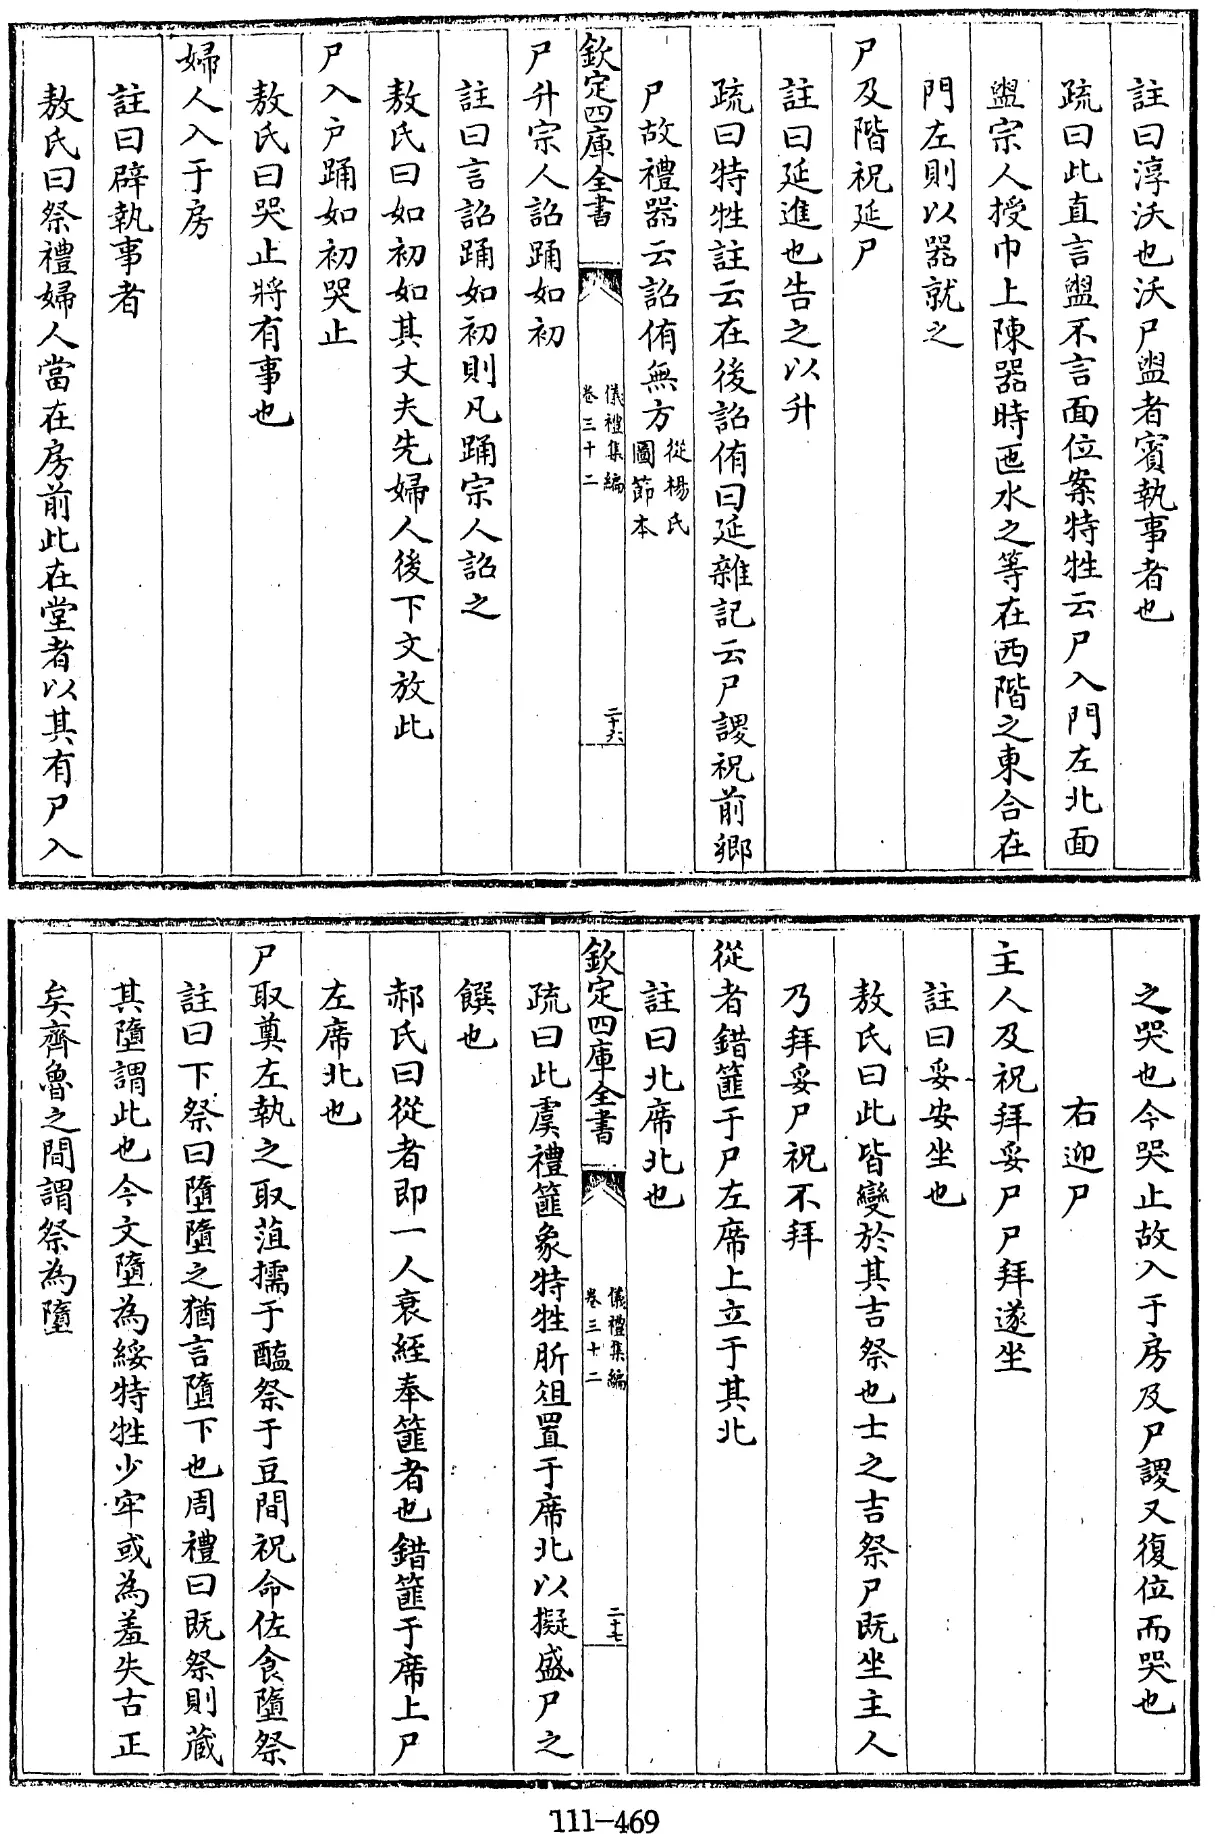 註曰淳沃也沃尸盥者賓執事者也
疏曰此直言盥不言面位案特牲云尸入門左北面
盥宗人授巾上陳器時匜水之等在西階之東合在
門左則以器就之
尸及階祝延尸
註曰延進也告之以升
疏曰特牲註云在後詔侑曰延雜記云尸謖祝前鄉
尸故禮器云詔侑無方從楊氏圖節本
欽定四庫全書
儀禮集編
卷三十二
二十六
尸升宗人詔踊如初
註曰言詔踊如初則凡踊宗人詔之
敖氏曰如初如其丈夫先婦人後下文放此
尸入户踊如初哭止
敖氏曰哭止將有事也
婦人入于房
註曰辟執事者
敖氏曰祭禮婦人當在房前此在堂者以其有尸入
之哭也今哭止故入于房及尸謖又復位而哭也
右迎尸
主人及祝拜妥尸尸拜遂坐
註曰妥安坐也
敖氏曰此皆變於其吉祭也士之吉祭尸既坐主人
乃拜妥尸祝不拜
從者錯篚于尸左席上立于其北
註曰北席北也
欽定四庫全書
儀禮集編
卷三十二
二十七
疏曰此虞禮篚象特牲肵俎置于席北以擬盛尸之
饌也
郝氏曰從者即一人衰絰奉篚者也錯篚于席上尸
左席北也
尸取奠左執之取菹擩于醢祭于豆間祝命佐食墮祭
註曰下祭曰墮墮之猶言墮下也周禮曰既祭則藏
其墮謂此也今文墮為綏特牲少牢或為羞失古正
矣齊魯之間謂祭為墮
111-469